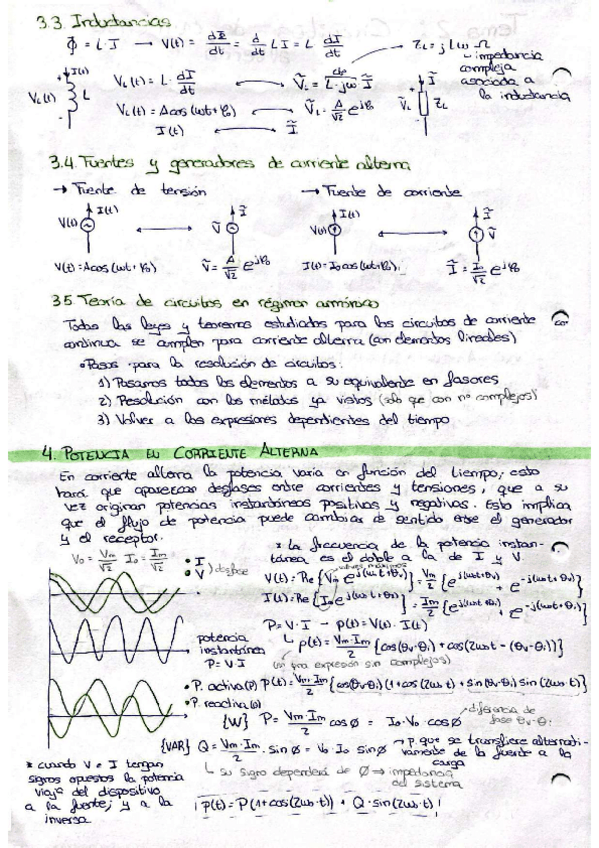 3.3. Inductancias
Φ = L·I → V(t) = dΦ/dt = d/dt L I = L dI/dt
Z_L = jLω Ω
impedancia
compleja
asociada a
la inductancia
I(t)
V_L(t) L
V_L(t) = L · dI/dt
Ṽ_L = L·jω Ĩ
V_L(t) = A cos(ωt + φ₀)
Ṽ_L = A/√2 e^jφ₀
I(t)
Ĩ
Ĩ
Ṽ_L Z_L
3.4. Fuentes y generadores de corriente alterna
→ Fuente de tensión → Fuente de corriente
V(t) I(t) Ṽ Ĩ V(t) I(t) Ṽ Ĩ
V(t) = A cos(ωt + φ₀) Ṽ = A/√2 e^jφ₀ I(t) = I₀ cos(ωt+φ₀) Ĩ = I₀/√2 e^jφ₀
3.5 Teoría de circuitos en régimen armónico
Todas las leyes y teoremas estudiados para los circuitos de corriente
continua se cumplen para corriente alterna (con elementos lineales)
• Pasos para la resolución de circuitos:
1) Pasamos todos los elementos a su equivalente en fasores
2) Resolución con los métodos ya vistos (solo que con nº complejos)
3) Volver a las expresiones dependientes del tiempo
4. POTENCIA EN CORRIENTE ALTERNA
En corriente alterna la potencia varía en función del tiempo, esto
hará que aparezcan desfases entre corrientes y tensiones, que a su
vez originan potencias instantáneas positivas y negativas. Esto implica
que el flujo de potencia puede cambiar de sentido entre el generador
y el receptor.
* La frecuencia de la potencia instan-
tánea es el doble a la de I y V.
V₀ = Vm/√2 I₀ = Im/√2
• I
• V
desfase
valores máximos
V(t) = Re{V₀ e^j(ωt+θv)} = Vm/2 {e^j(ωt+θv) + e^-j(ωt+θv)}
I(t) = Re{I₀ e^j(ωt+θi)} = Im/2 {e^j(ωt+θi) + e^-j(ωt+θi)}
P = V·I → p(t) = V(t)·I(t)
potencia
instantánea
P = V·I
p(t) = Vm·Im/2 {cos(θv-θi) + cos(2ωt - (θv-θi))}
expresión sin complejos)
• P. activa (P)
• P. reactiva (Q)
p(t) = Vm·Im/2 {cos(θv-θi)(1+cos(2ωt) + sin(θv-θi) sin(2ωt)}
{W} P = Vm·Im/2 cosø = I₀·V₀ cosø
diferencia de
fase θv-θi
{VAR} Q = Vm·Im/2 · sinø = V₀ I₀ sinø → p. que se transfiere alternati-
vamente de la fuente a la
carga
↳ su signo dependerá de Ø → impedancia
del sistema
* cuando V e I tengan
signos opuestos la potencia
viaja del dispositivo
a la fuente, y a la
inversa
p(t) = P(1+cos(2ω·t)) + Q·sin(2ω·t)